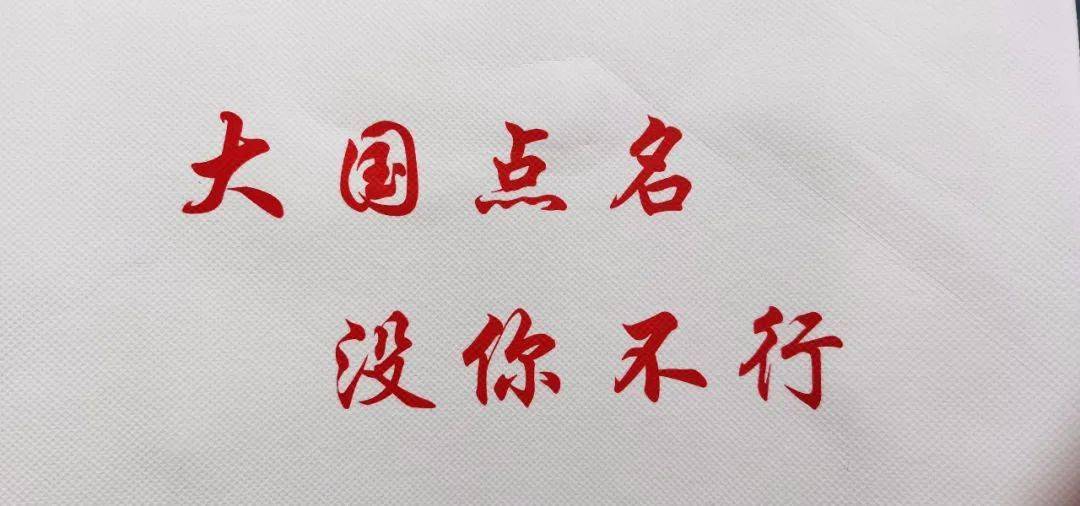 大国点名
没你不行